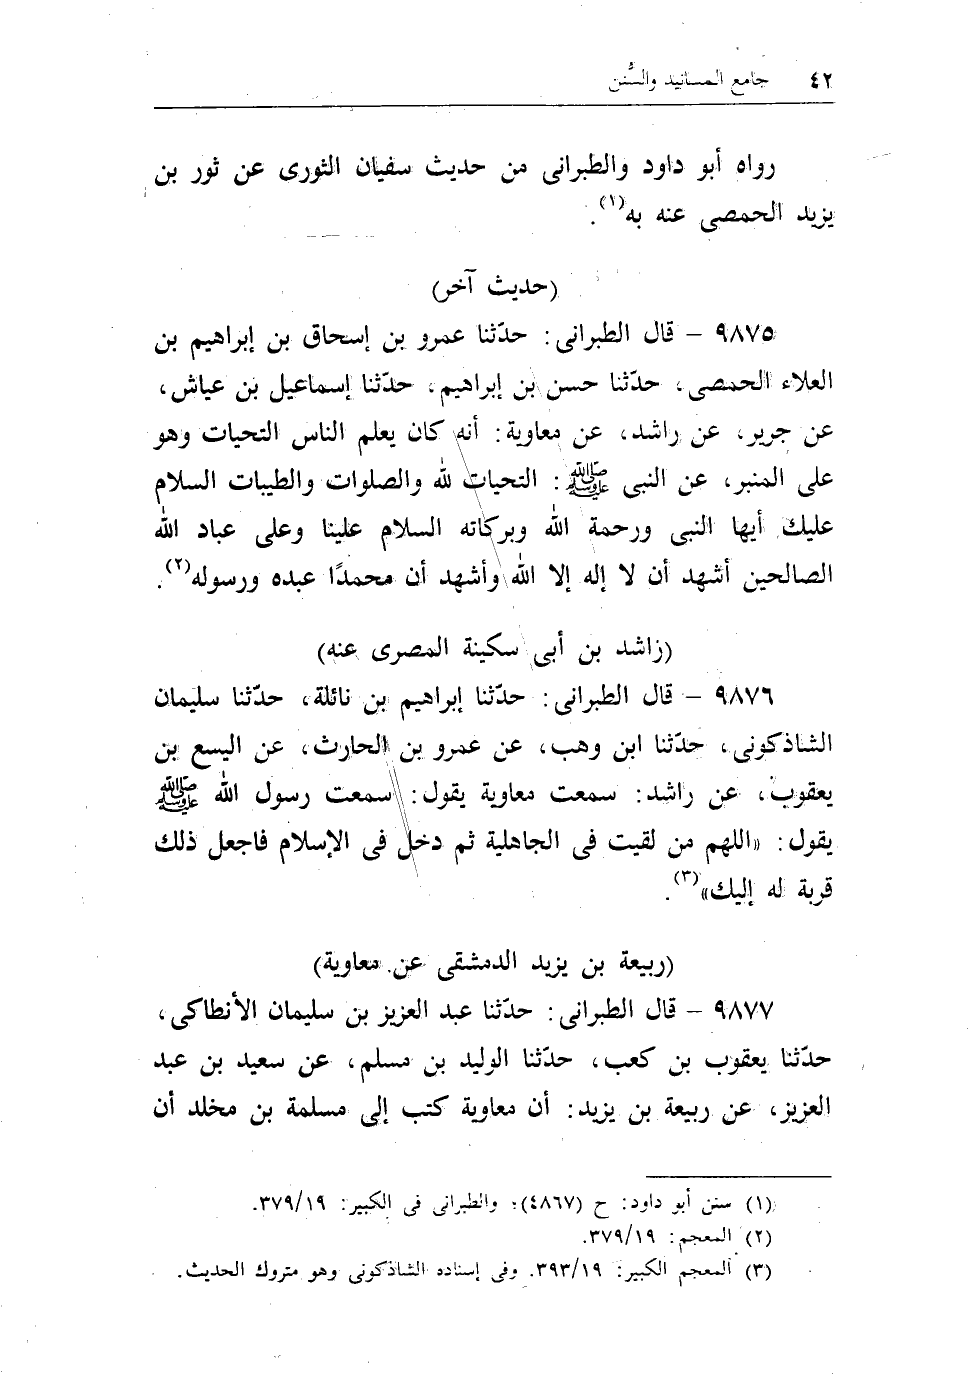 ٤٢ جامع المسانيد والسُّنن
رواه أبو داود والطبرانى من حديث سفيان الثورى عن ثور بن
يزيد الحمصى عنه به(١).
(حديث آخر)
٩٨٧٥ – قال الطبرانى: حدّثنا عمرو بن إسحاق بن إبراهيم بن
العلاء الحمصى، حدّثنا حسن بن إبراهيم، حدّثنا إسماعيل بن عياش،
عن جرير، عن راشد، عن معاوية: أنه كان يعلم الناس التحيات وهو
على المنبر، عن النبى ﷺ: التحيات لله والصلوات والطيبات السلام
عليك أيها النبى ورحمة الله وبركاته السلام علينا وعلى عباد الله
الصالحين أشهد أن لا إله إلا الله وأشهد أن محمدًا عبده ورسوله(٢).
(راشد بن أبى سكينة المصرى عنه)
٩٨٧٦ – قال الطبرانى: حدّثنا إبراهيم بن نائلة، حدّثنا سليمان
الشاذكونى، حدّثنا ابن وهب، عن عمرو بن الحارث، عن اليسع بن
يعقوب، عن راشد: سمعت معاوية يقول: سمعت رسول الله ﷺ
يقول: «اللهم من لقيت فى الجاهلية ثم دخل فى الإسلام فاجعل ذلك
قربة له إليك»(٣).
(ربيعة بن يزيد الدمشقى عن معاوية)
٩٨٧٧ – قال الطبرانى: حدّثنا عبد العزيز بن سليمان الأنطاكى،
حدّثنا يعقوب بن كعب، حدّثنا الوليد بن مسلم، عن سعيد بن عبد
العزيز، عن ربيعة بن يزيد: أن معاوية كتب إلى مسلمة بن مخلد أن
(١) سنن أبو داود: ح (٤٨٦٧)؛ والطبرانى فى الكبير: ٣٧٩/١٩.
(٢) المعجم: ٣٧٩/١٩.
(٣) المعجم الكبير: ٣٩٣/١٩. وفى إسناده الشاذكونى وهو متروك الحديث.